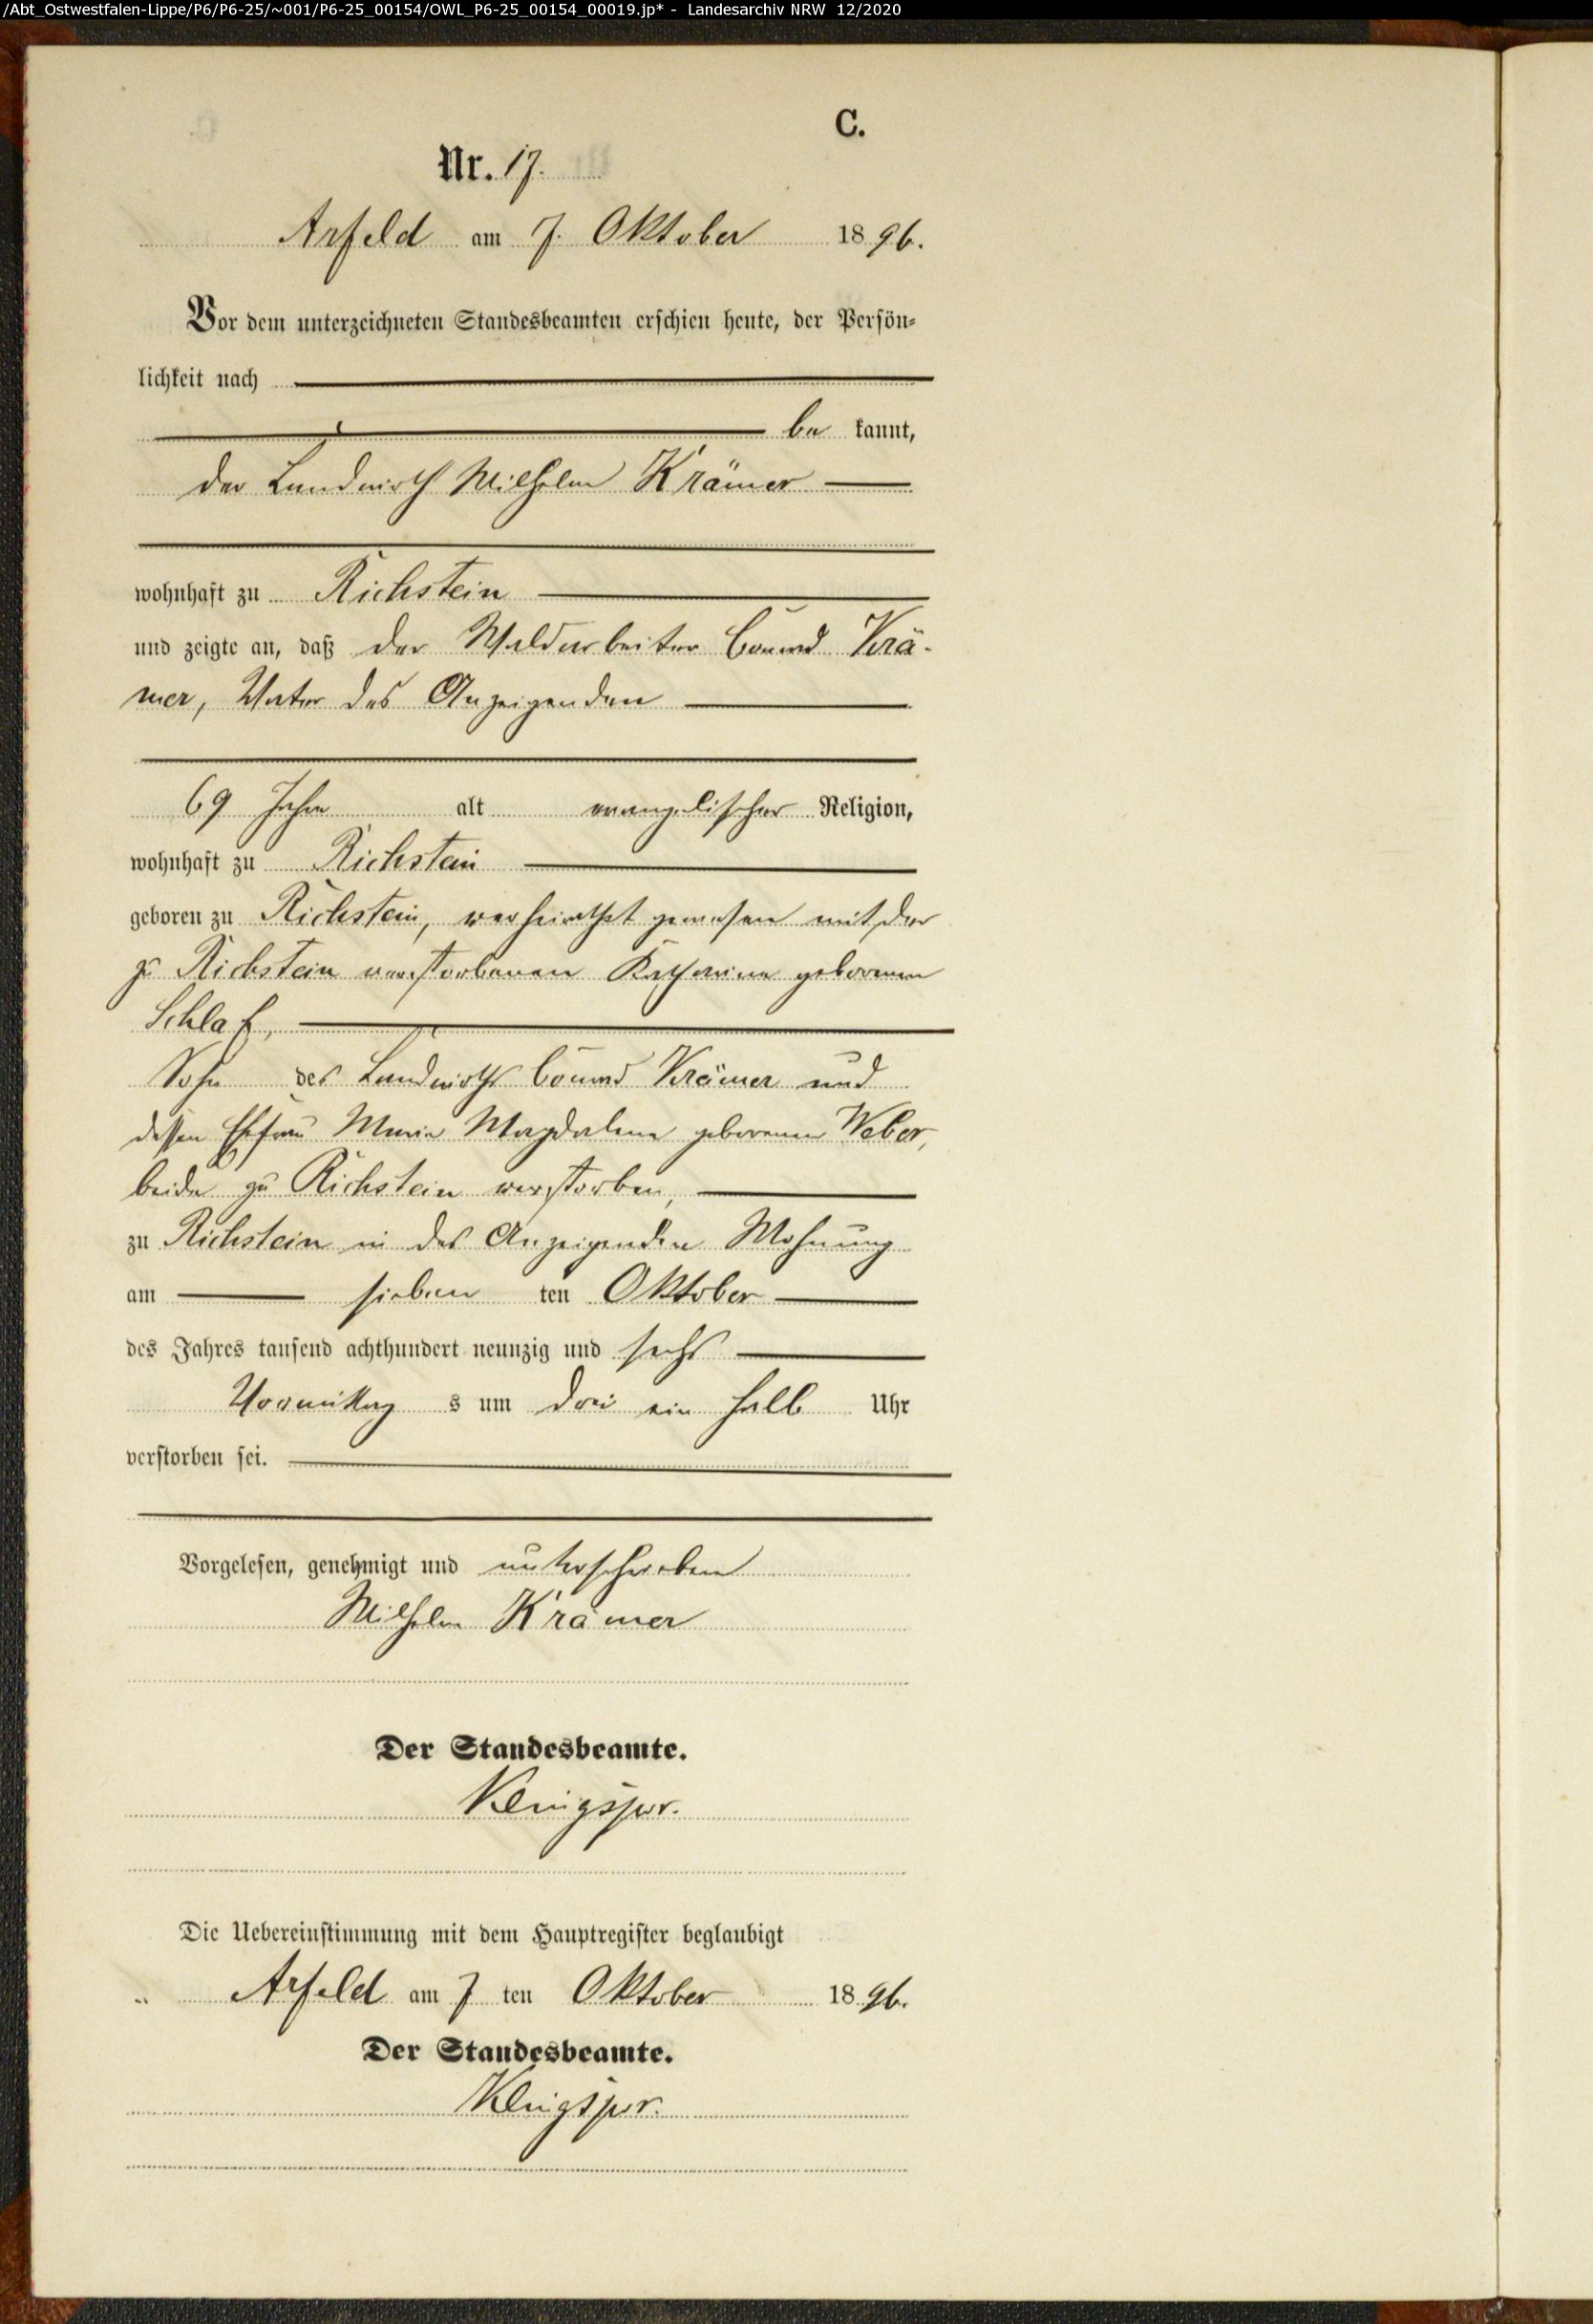 /Abt_Ostwestfalen-Lippe/P6/P6-25/~001/P6-25_00154/OWL_P6-25_00154_00019.jp* - Landesarchiv NRW 12/2020
C.
Nr. 17.
Arfeld am 7. Oktober 1896.
Vor dem unterzeichneten Standesbeamten erschien heute, der Persön-
lichkeit nach
be kannt,
der Landwirth Wilhelm Krämer
wohnhaft zu Richstein
und zeigte an, daß der Waldarbeiter Connrd Krä-
mer, Vater des Anzeigenden
69 Jahre alt evangelischer Religion,
wohnhaft zu Richstein
geboren zu Richstein, verheirathet gewesen mit der
zu Richstein verstorbenen Katharine geborenen
Schlaf,
Sohn des Landwirths Connrd Krämer und
dessen Ehefrau Marie Magdalene geborenen Weber,
beide zu Richstein verstorben,
zu Richstein in des Anzeigenden Wohnung
am sieben ten Oktober
des Jahres tausend achthundert neunzig und sechs
Vormittag s um drei ein halb Uhr
verstorben sei.
Vorgelesen, genehmigt und unterschrieben
Wilhelm Krämer
Der Standesbeamte.
Klingspor.
Die Uebereinstimmung mit dem Hauptregister beglaubigt
Arfeld am 7 ten Oktober 1896.
Der Standesbeamte.
Klingspor.